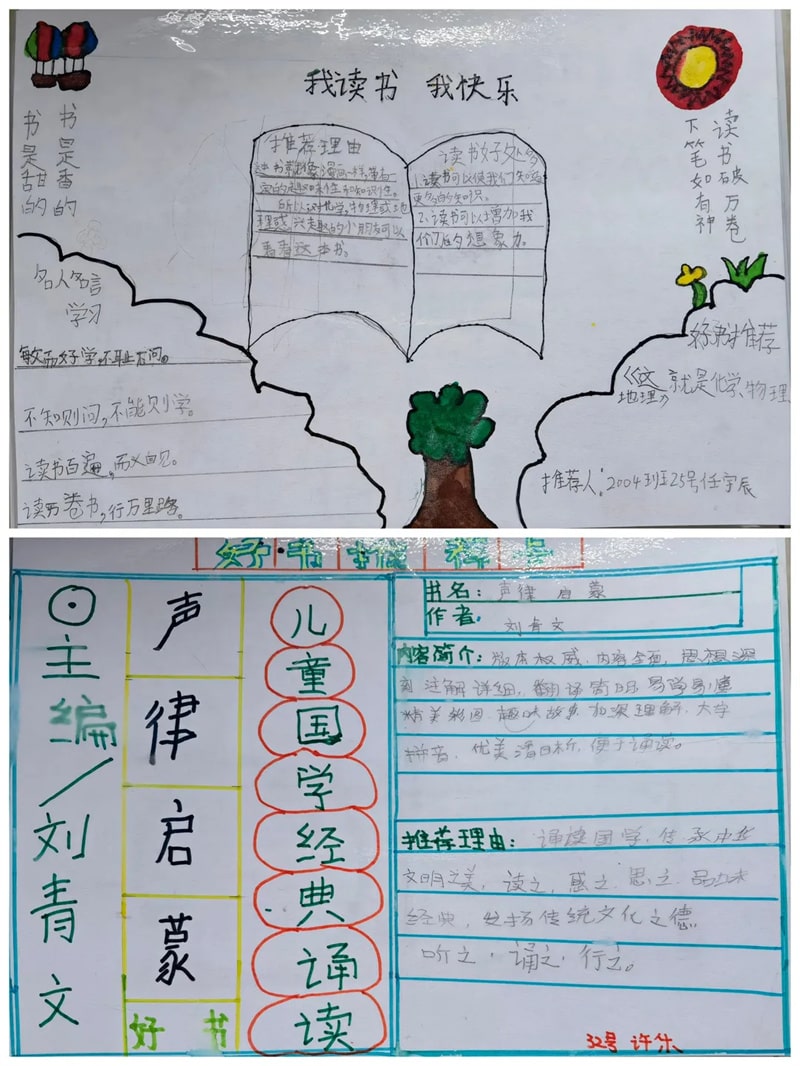 我读书 我快乐
书是香的
书是甜的
读书破万卷
下笔如有神
推荐理由
所以对化学,物理或地
理或兴趣的小朋友可以
看看这本书。
读书好处多
1.读书可以使我们知道
更多的知识。
2.读书可以增加我
们的想象力。
名人名言
学习
敏而好学,不耻下问。
不知则问,不能则学。
读书百遍,而义自见。
读万卷书,行万里路。
好书推荐
《这就是化学、物理
地理》
推荐人:2004班25号任宇辰
好书推荐
主编/刘青文
声律启蒙
好书
儿童国学经典诵读
书名:声律启蒙
作者:刘青文
内容简介:版本权威,内容全面,思想深
刻注解详细,翻译简明易学易懂
精美彩图,趣味故事,加深理解,大字
拼音,优美,便于诵读。
推荐理由:诵读国学,传承中华
文明之美,读之,感之,思之,品
经典,发扬传统文化之德
听之,诵之,行之。
32号 许乐